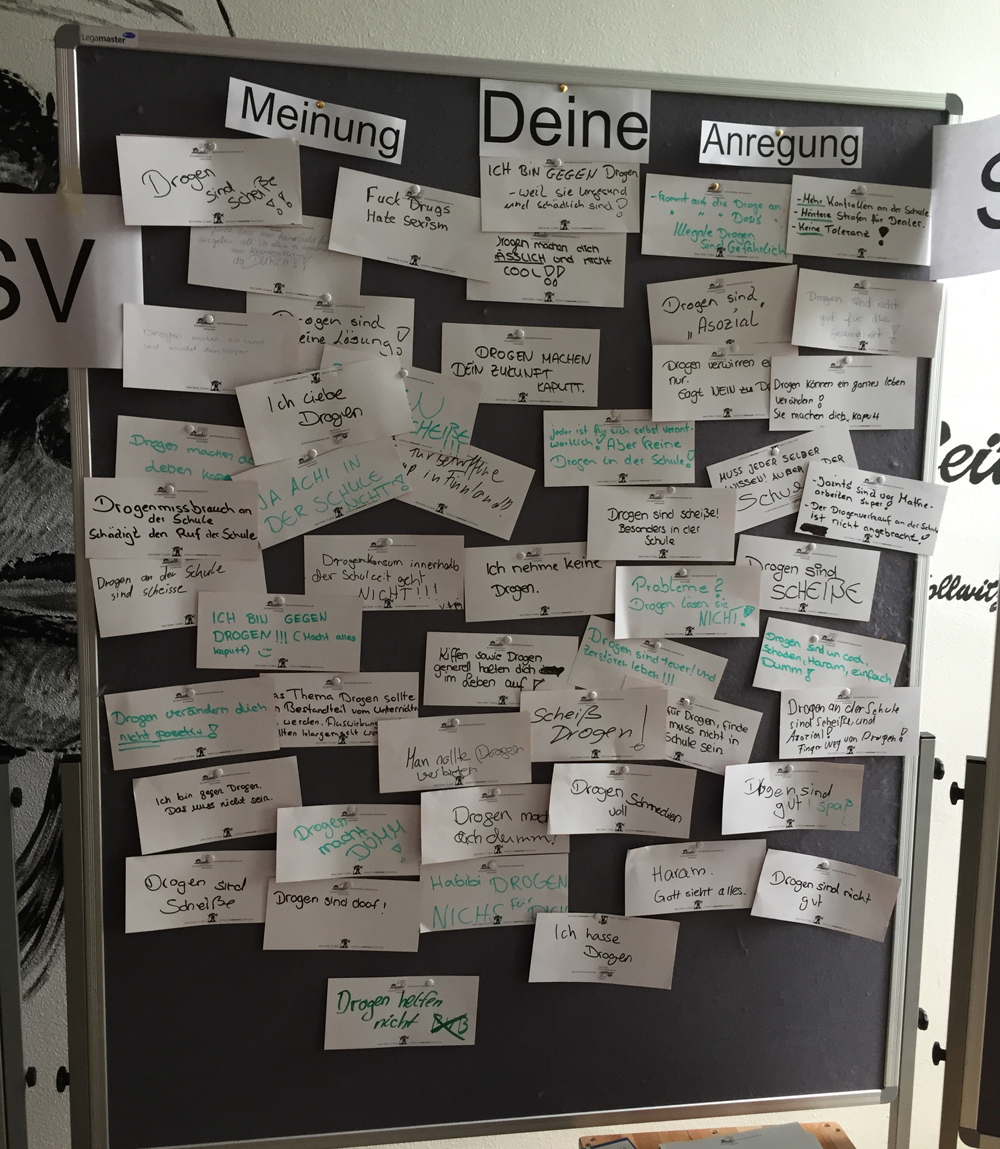 Legamaster
Meinung
Deine
Anregung
SV
S
Drogen
sind scheiße
!
Fuck Drugs
Hate sexism
ICH BIN GEGEN Drogen
- weil sie ungesund
und schädlich sind!
Drogen machen dich
ÄSSLICH und nicht
COOL!!
- kommt auf die Droge an
" " " Dosis
Illegale Drogen
sind Gefährlich
- Mehr Kontrollen an der Schule
- Härtere Strafen für Dealer.
- Keine Toleranz!
Drogen sind
keine Lösung!
Drogen sind
"Asozial
Drogen sind nicht
gut für die
Gesundheit!
DROGEN MACHEN
DEIN ZUKUNFT
KAPUTT.
Drogen verwirren ei
nur.
Sagt NEIN zu D
Drogen können ein ganzes leben
verändern!
Sie machen dich kaputt
Ich liebe
Drogen
CHEIßE
in Finnland!!!
Drogen machen da
Leben kapu
JA ACHI IN
DER SCHULE
NICHT!
jeder ist für sich selbst verant-
wortlich! Aber keine
Drogen in der Schule!
MUSS JEDER SELBER
WISSEN! AUßER DER
Schule
- Joints sind vor Mathe-
arbeiten super!
- Der Drogenverkauf an der Schule
ist nicht angebracht!
Drogenmissbrauch an
der Schule
Schädigt den Ruf der Schule
Drogen sind scheiße!
Besonders in der
Schule
Drogen an der Schule
sind scheisse
Drogenkonsum innerhalb
der Schulzeit geht
NICHT!!!
Ich nehme keine
Drogen.
Probleme?
Drogen lösen sie
NICHT!
Drogen sind
SCHEIßE
ICH BIN GEGEN
DROGEN!!! (Macht alles
kaputt)
Kiffen sowie Drogen
generell halten dich
im Leben auf!
Drogen sind teuer! und
Zerstören leben!!!
Drogen sind un cool,
Schaden, Haram, einfach
Dumm!
Drogen verändern dich
nicht positiv!
as Thema Drogen sollte
Bestandteil vom Unterricht
werden. Auswirkung
lten klargestellt we
Man sollte Drogen
verbieten
Scheiß
Drogen!
für Drogen, finde
muss nicht in
Schule sein.
Drogen an der Schule
sind Scheiße und
Asozial!
Finger Weg von Drogen!
Ich bin gegen Drogen.
Das muss nicht sein.
Drogen
macht
DUMM!
Drogen mach
dich dumm!
Drogen Schmecken
voll
Drogen sind
gut! Spaß
Drogen sind
Scheiße
Drogen sind doof!
Habibi DROGEN
NICHS Für DICH
Haram.
Gott sieht alles.
Drogen sind nicht
gut
Ich hasse
Drogen
Drogen helfen
nicht
eit
ollwitz